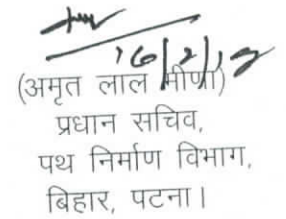 16/2/18
(अमृत लाल मीणा)
प्रधान सचिव,
पथ निर्माण विभाग,
बिहार, पटना।